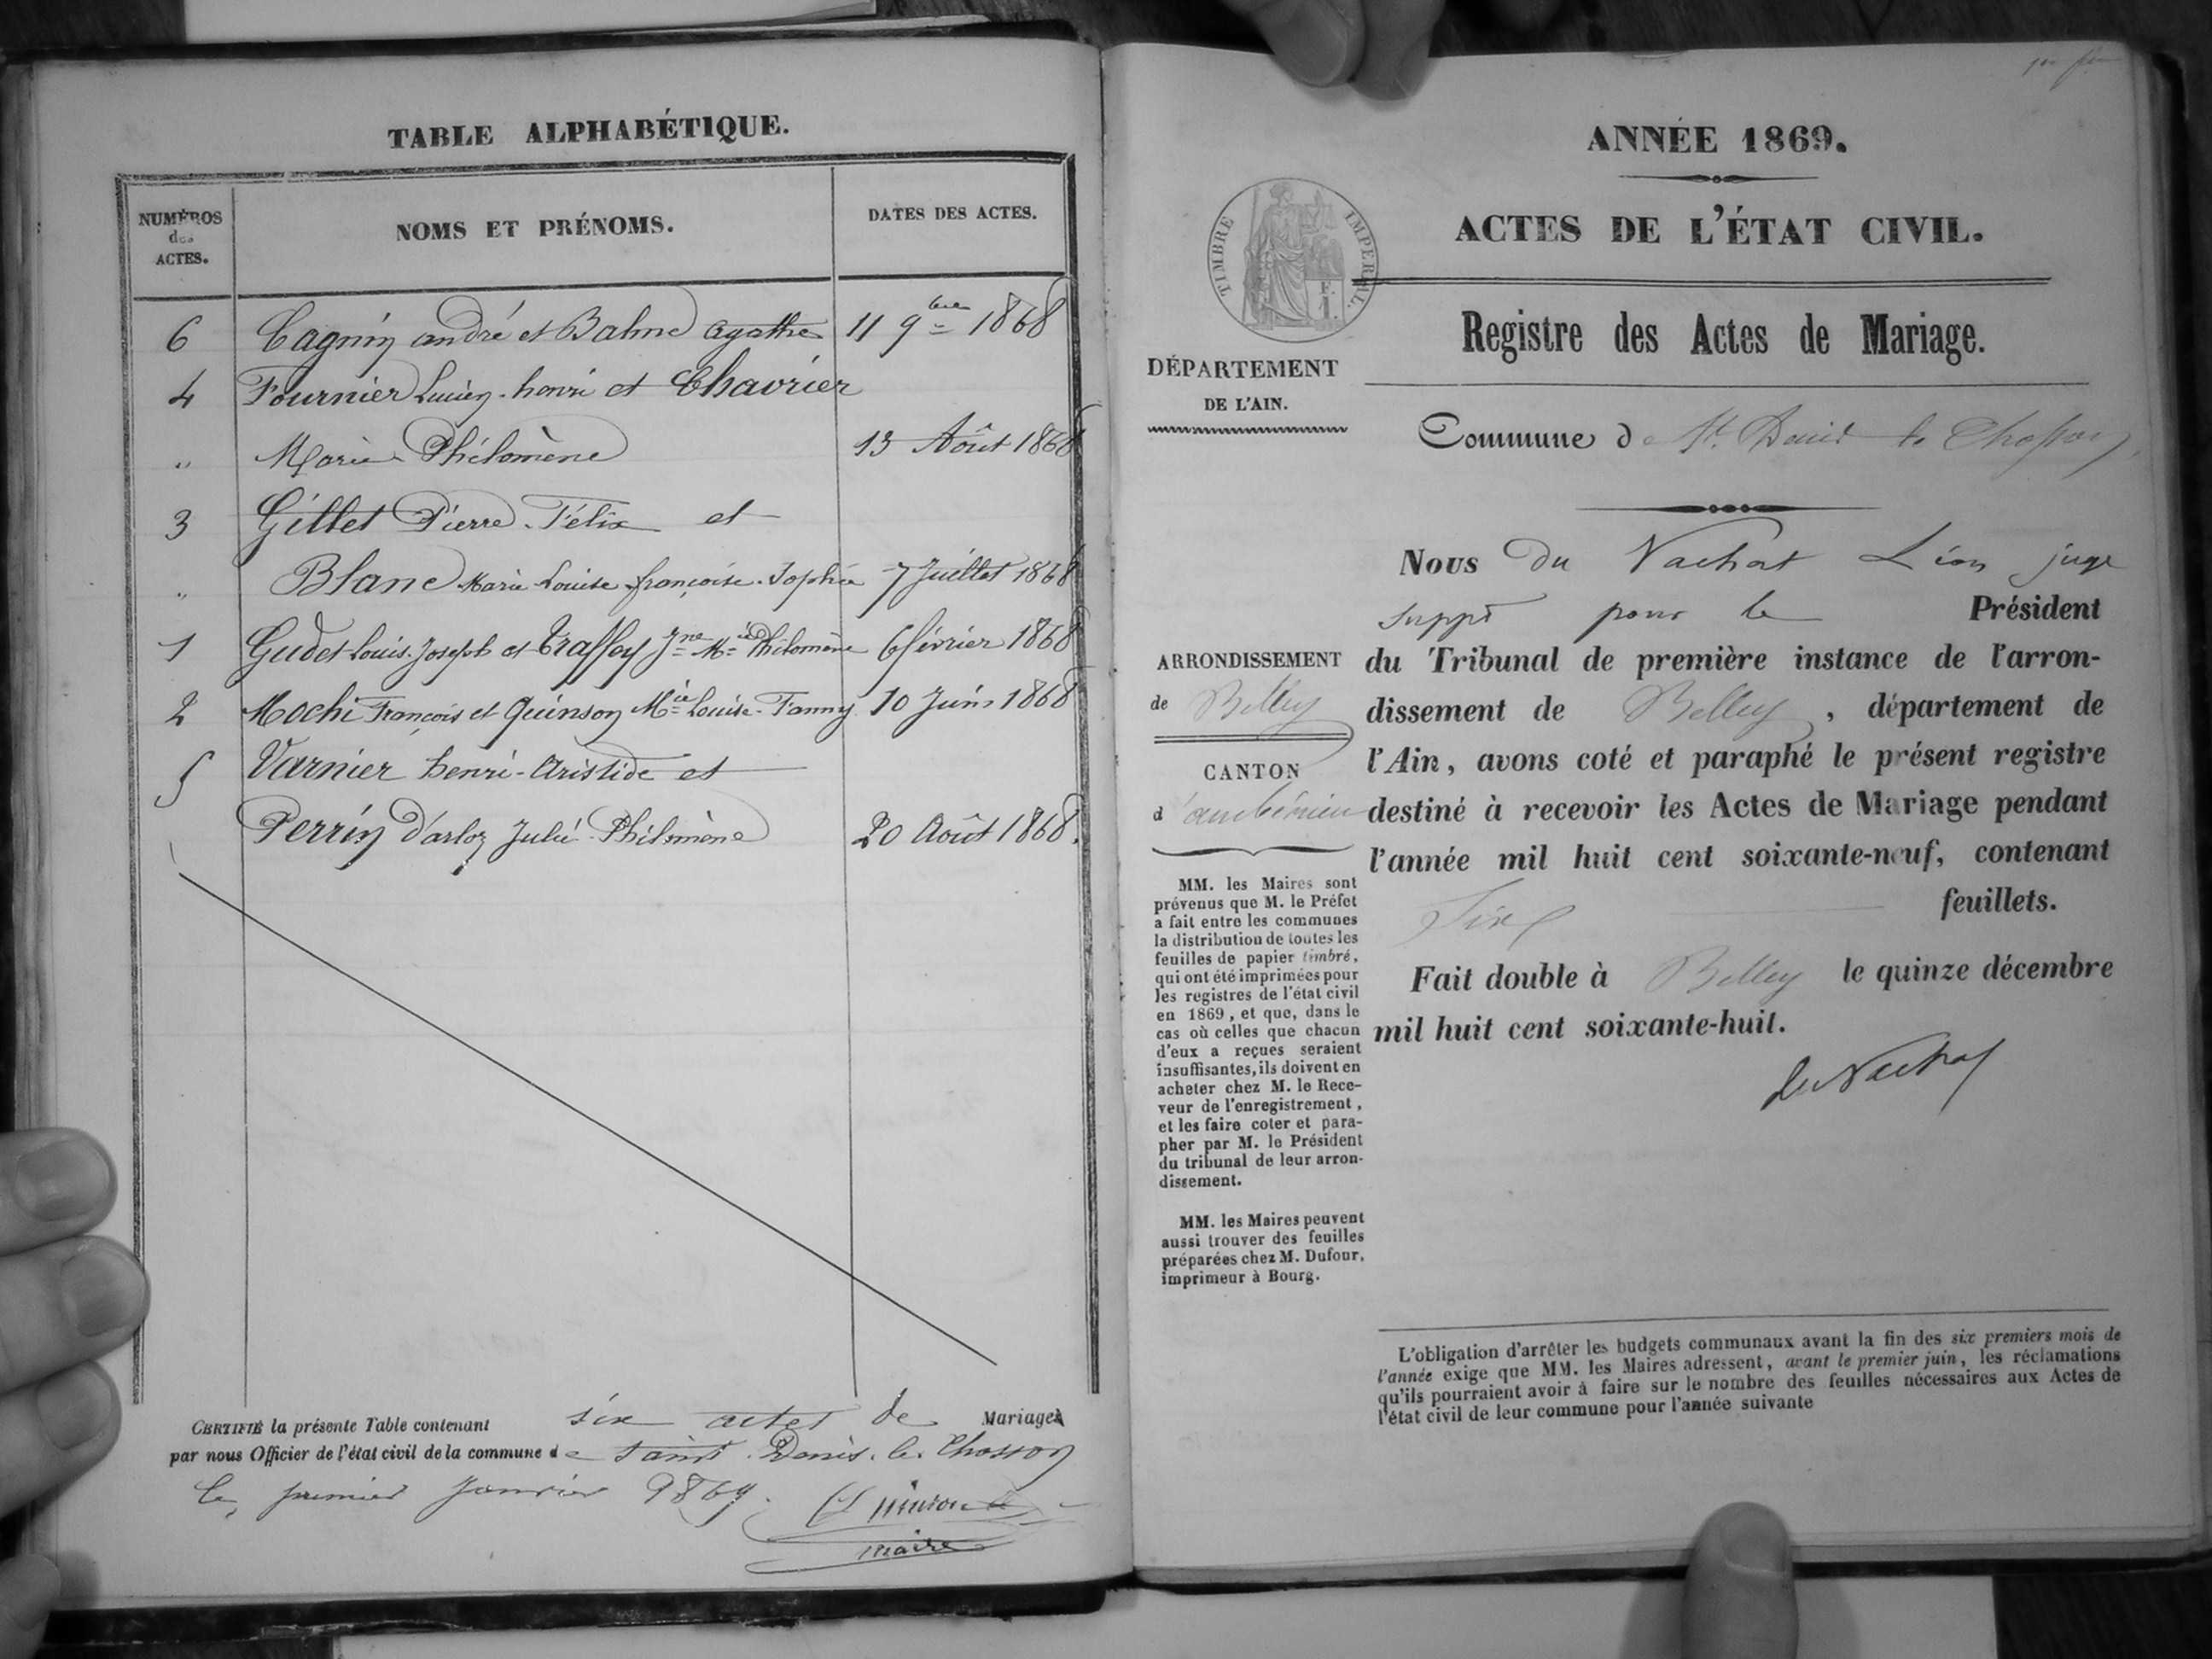 TABLE ALPHABÉTIQUE.
NUMÉROS
des
ACTES.
NOMS ET PRÉNOMS.
DATES DES ACTES.
6 Cagnin andré et Balme agathe 11 9bre 1868
4 Fournier Lucien-henri et Chavrier
" Marie Philomène 13 Août 1868
3 Gillet Pierre-Félix et
" Blanc Marie Louise françoise-Sophie 7 Juillet 1868
1 Gudet Louis-Joseph et Traffey Jne Mie Philomène 6 février 1868
2 Mochi François et Quinson Mie Louise-Fanny 10 Juin 1868
5 Varnier henri-Aristide et
Perrin d'arloz Julie-Philomène 20 Août 1868.
CERTIFIÉ la présente Table contenant six actes de Mariages
par nous Officier de l'état civil de la commune de Saint-Denis-le-Chosson
le premier Janvier 1869.
maire
ANNÉE 1869.
ACTES DE L'ÉTAT CIVIL.
TIMBRE IMPÉRIAL.
Registre des Actes de Mariage.
DÉPARTEMENT
DE L'AIN.
Commune de St. Denis le Chosson
Nous du Vachat Léon juge
suppt pour le Président
ARRONDISSEMENT
de Belley
CANTON
d'ambérieu
du Tribunal de première instance de l'arron-
dissement de Belley, département de
l'Ain, avons coté et paraphé le présent registre
destiné à recevoir les Actes de Mariage pendant
l'année mil huit cent soixante-neuf, contenant
Six feuillets.
Fait double à Belley le quinze décembre
mil huit cent soixante-huit.
du Vachat
MM. les Maires sont
prévenus que M. le Préfet
a fait entre les communes
la distribution de toutes les
feuilles de papier timbré,
qui ont été imprimées pour
les registres de l'état civil
en 1869, et que, dans le
cas où celles que chacun
d'eux a reçues seraient
insuffisantes, ils doivent en
acheter chez M. le Rece-
veur de l'enregistrement,
et les faire coter et para-
pher par M. le Président
du tribunal de leur arron-
dissement.
MM. les Maires peuvent
aussi trouver des feuilles
préparées chez M. Dufour,
imprimeur à Bourg.
L'obligation d'arrêter les budgets communaux avant la fin des six premiers mois de
l'année exige que MM. les Maires adressent, avant le premier juin, les réclamations
qu'ils pourraient avoir à faire sur le nombre des feuilles nécessaires aux Actes de
l'état civil de leur commune pour l'année suivante